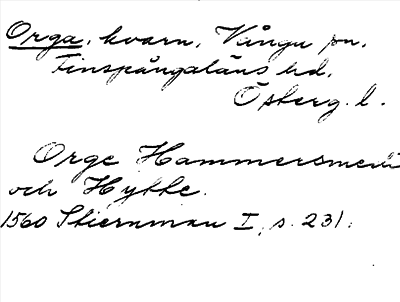 Orga, kvarn, Vånga sn.
Finspångaläns hd.
Österg. l.
Orge Hammersmedh
och Hytte.
1560 Stiernman I, s. 231.